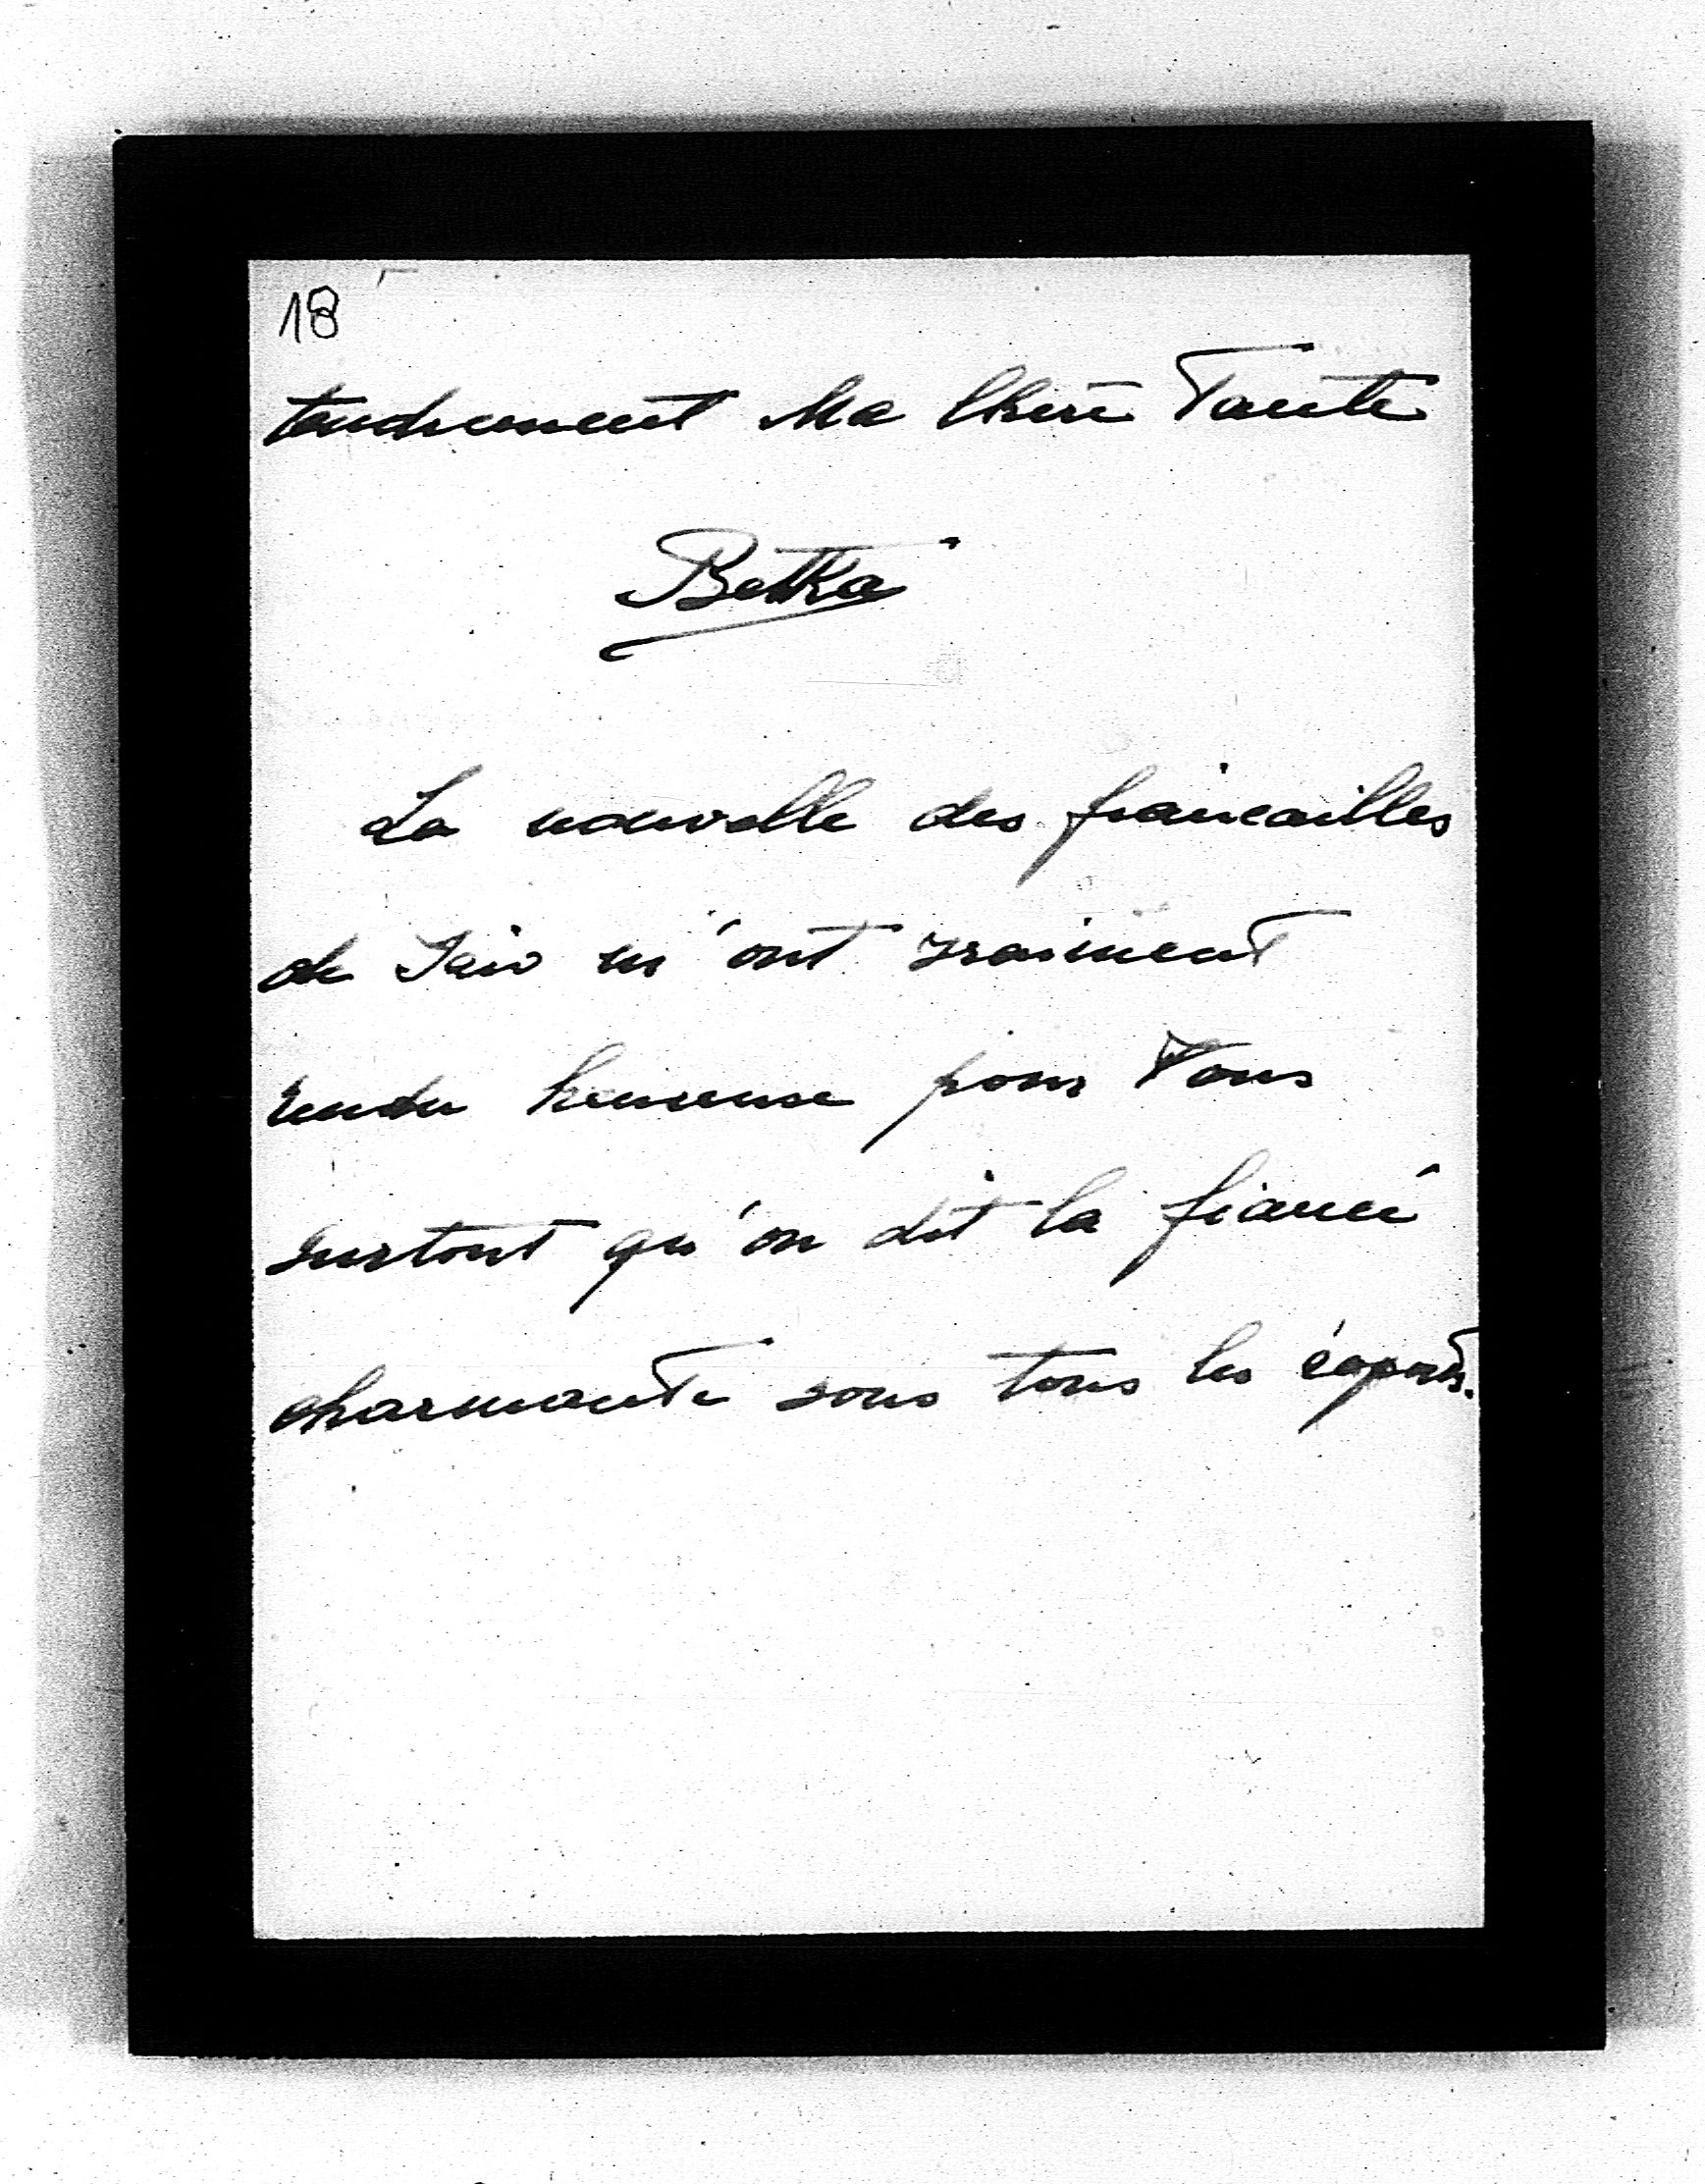 18
tendrement Ma Chère Tante
Betka
La nouvelle des fiancailles
de m'ont vraiment
rendu heureuse pour Vous
surtout qu'on dit la fiancé
charmante sous tous les